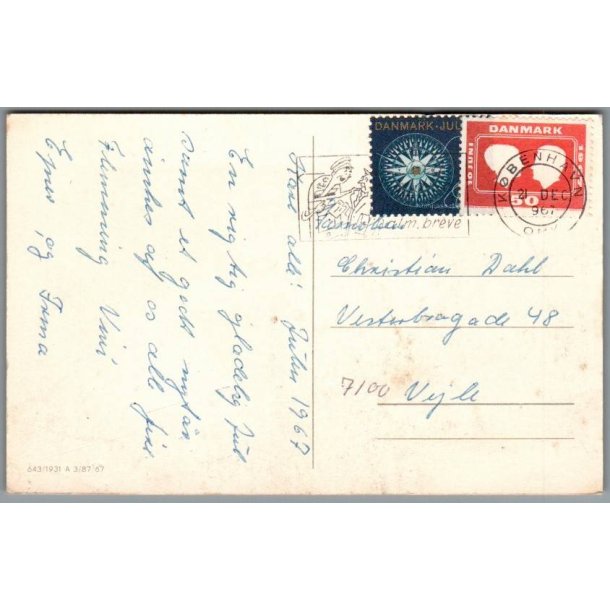 Kære alle! Julen 1967
En rigtig glædelig Jul
samt et godt nytår
ønskes af os alle fire
Flemming Vini
Ejnar og Irma
643/1931 A 3/87 67
DANMARK · JUL
DANMARK
50
KØBENHAVN
21 DEC
967
OMK
m. breve
Familien
Christian Dahl
Vesterbrogade 48
7100 Vejle